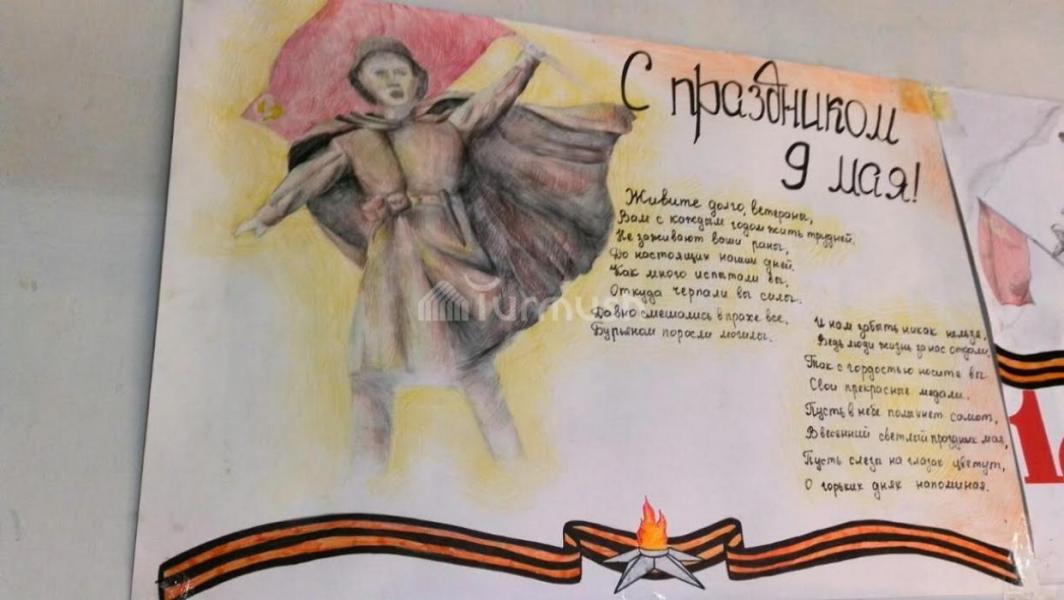 С праздником
9 мая!
Живите долго, ветераны,
Вам с каждым годом жить трудней.
Не заживают ваши раны,
До настоящих наших дней.
Как много испытали вы,
Откуда черпали вы силы.
Давно смешались в прахе все,
Бурьяном поросли могилы.
И нам забыть никак нельзя,
Ведь люди жизнь за нас отдали,
Так с гордостью носите вы
Свои прекрасные медали.
Пусть в небе полыхнет салют,
В весенний светлый праздник мая,
Пусть слеза на глазах цветут,
О горьких днях напоминая.
Turmush